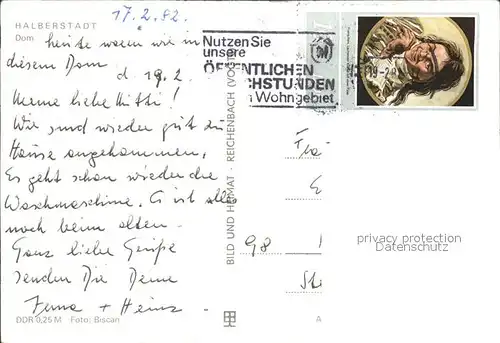 17.2.82.
HALBERSTADT
Dom heute waren wir in
diesem Dom
d. 19.2.
liebe Mutti!
Wir sind wieder gut zu
Hause angekommen.
Es geht schon wieder die
Waschmaschine. Es ist alles
noch beim alten.
Ganz liebe Grüße
senden Dir Deine
+ Heinz
DDR 0,25 M Foto: Biscan
BILD UND HEIMAT · REICHENBACH (VOGT
Nutzen Sie
unsere
ÖFFENTLICHEN
CHSTUNDEN
Wohngebiet
98
privacy protection
Datenschutz
A